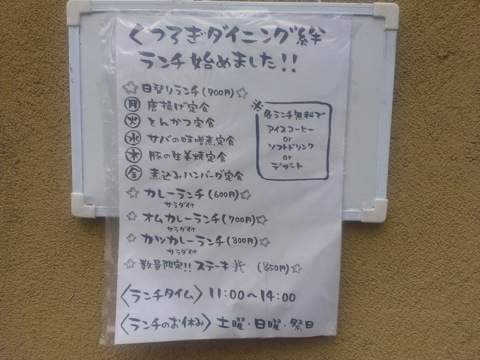 くつろぎダイニング絆
ランチ始めました!!
☆日替りランチ(700円)☆
月 唐揚げ定食
火 とんかつ定食
水 サバの味噌煮定食
木 豚の生姜焼定食
金 煮込みハンバーグ定食
※
各ランチ無料で
アイスコーヒー
or
ソフトドリンク
or
デザート
☆カレーランチ(600円)☆
サラダ付
☆オムカレーランチ(700円)☆
サラダ付
☆カツカレーランチ(800円)☆
サラダ付
☆数量限定!!ステーキ丼(850円)☆
〈ランチタイム〉11:00〜14:00
〈ランチのお休み〉土曜・日曜・祭日